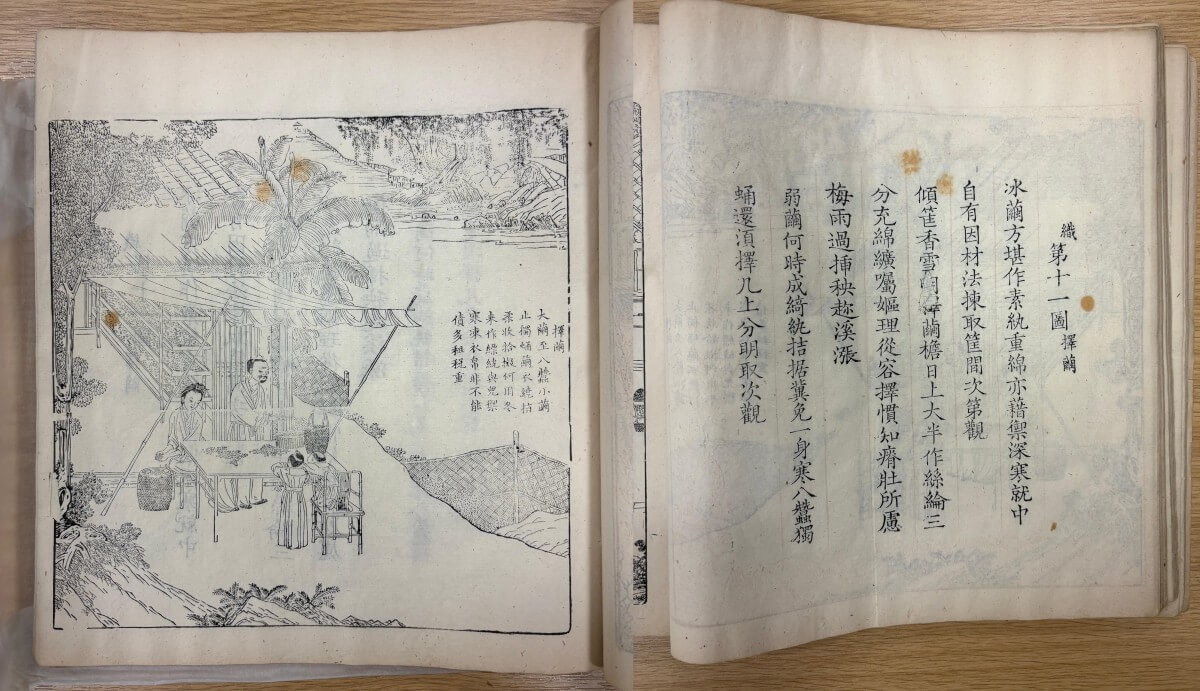 織第十一圖擇繭
冰繭方堪作素紈重綿亦藉禦深寒就中
自有因材法揀取筐間次第觀
傾筐香雪明擇繭檐日上大半作絲綸三
分充綿纊囑嫗理從容擇慣知瘠壯所慮
梅雨過揷秧趂溪漲
弱繭何時成綺紈拮据冀免一身寒八蠶獨
蛹還須擇几上分明取次觀
擇繭
大繭至八蠶小繭
止獨蛹繭衣繞指
柔收拾擬何用冬
來作縕絖與兒禦
寒凍衣帛非不能
債多租稅重